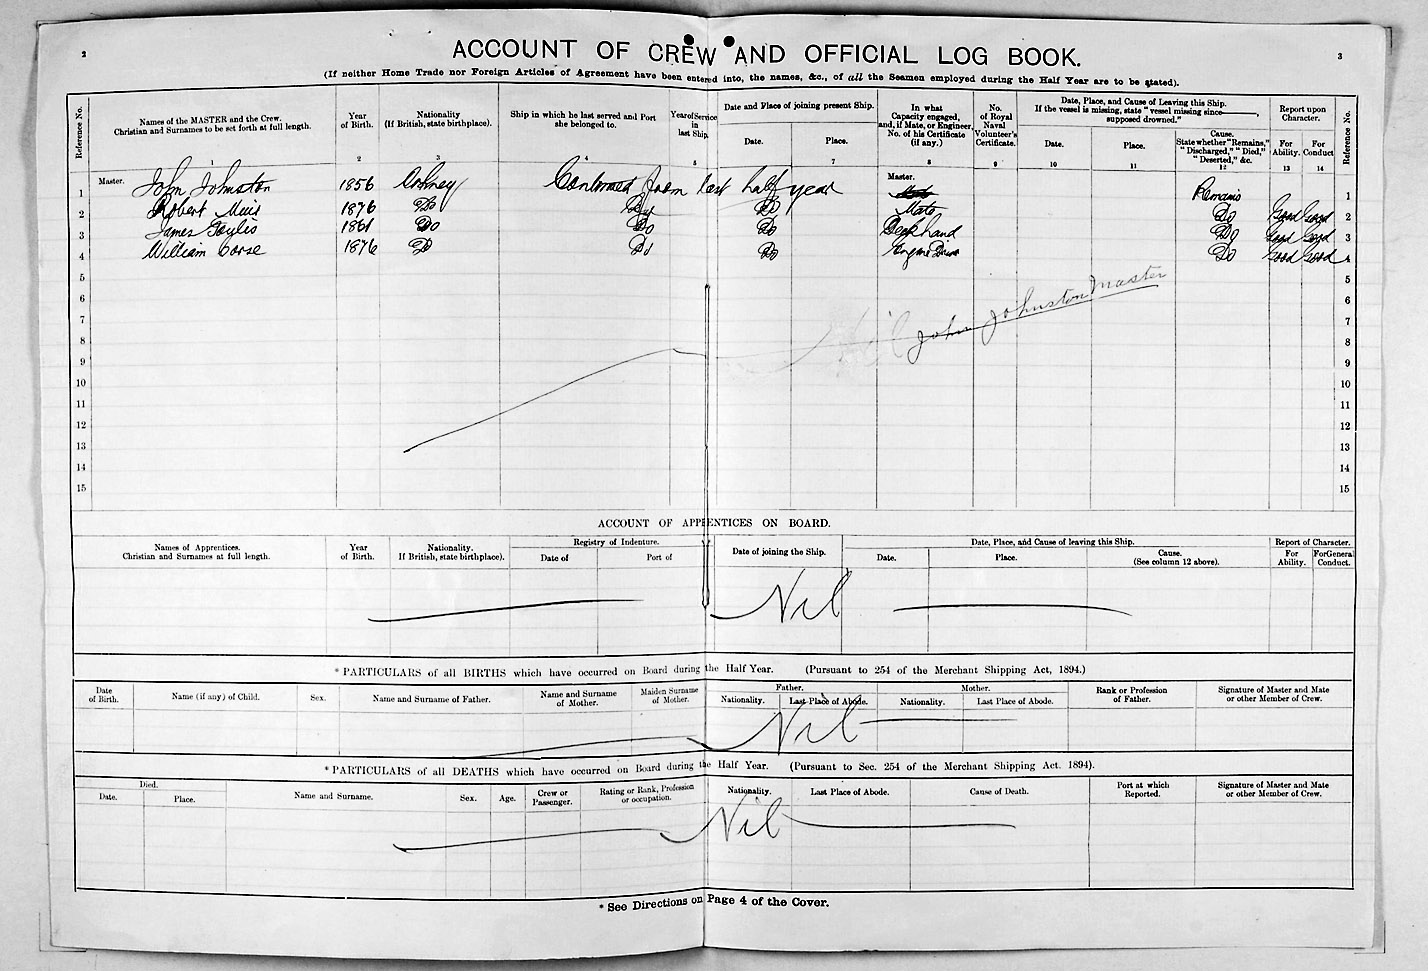 2
ACCOUNT OF CREW AND OFFICIAL LOG BOOK.
3
(If neither Home Trade nor Foreign Articles of Agreement have been entered into, the names, &c., of all the Seamen employed during the Half Year are to be stated).
Reference No.
Names of the MASTER and the Crew. Christian and Surnames to be set forth at full length.
Year of Birth.
Nationality (If British, state birthplace).
Ship in which he last served and Port she belonged to.
Year of Service in last Ship.
Date and Place of joining present Ship.
Date.
Place.
In what Capacity engaged, and, if Mate, or Engineer, No. of his Certificate (if any.)
No. of Royal Naval Volunteer's Certificate.
Date, Place, and Cause of Leaving this Ship. If the vessel is missing, state "vessel missing since——, supposed drowned."
Date.
Place.
Cause. State whether "Remains," "Discharged," "Died," "Deserted," &c.
Report upon Character.
For Ability.
For Conduct
Reference No.
1 2 3 4 5 7 8 9 10 11 12 13 14
1 Master. John Johnston 1856 Orkney Continued from last half year Master. Mate Remains 1
2 Robert Muir 1876 Do Do Do Mate Do Good Good 2
3 James 1861 Do Do Do Deckhand Do Good Good 3
4 William Corse 1876 Do Do Do Engine Driver Do Good Good 4
5 5
6 6
7 7
8 8
9 9
10 10
11 11
12 12
13 13
14 14
15 15
Nil John Johnston Master
ACCOUNT OF APPRENTICES ON BOARD.
Names of Apprentices. Christian and Surnames at full length.
Year of Birth.
Nationality. If British, state birthplace).
Registry of Indenture.
Date of
Port of
Date of joining the Ship.
Date, Place, and Cause of leaving this Ship.
Date.
Place.
Cause. (See column 12 above).
Report of Character.
For Ability.
For General Conduct.
Nil
* PARTICULARS of all BIRTHS which have occurred on Board during the Half Year. (Pursuant to 254 of the Merchant Shipping Act, 1894.)
Date of Birth.
Name (if any) of Child.
Sex.
Name and Surname of Father.
Name and Surname of Mother.
Maiden Surname of Mother.
Father.
Nationality.
Last Place of Abode.
Mother.
Nationality.
Last Place of Abode.
Rank or Profession of Father.
Signature of Master and Mate or other Member of Crew.
Nil
* PARTICULARS of all DEATHS which have occurred on Board during the Half Year. (Pursuant to Sec. 254 of the Merchant Shipping Act. 1894).
Died.
Date.
Place.
Name and Surname.
Sex.
Age.
Crew or Passenger.
Rating or Rank, Profession or occupation.
Nationality.
Last Place of Abode.
Cause of Death.
Port at which Reported.
Signature of Master and Mate or other Member of Crew.
Nil
* See Directions on Page 4 of the Cover.